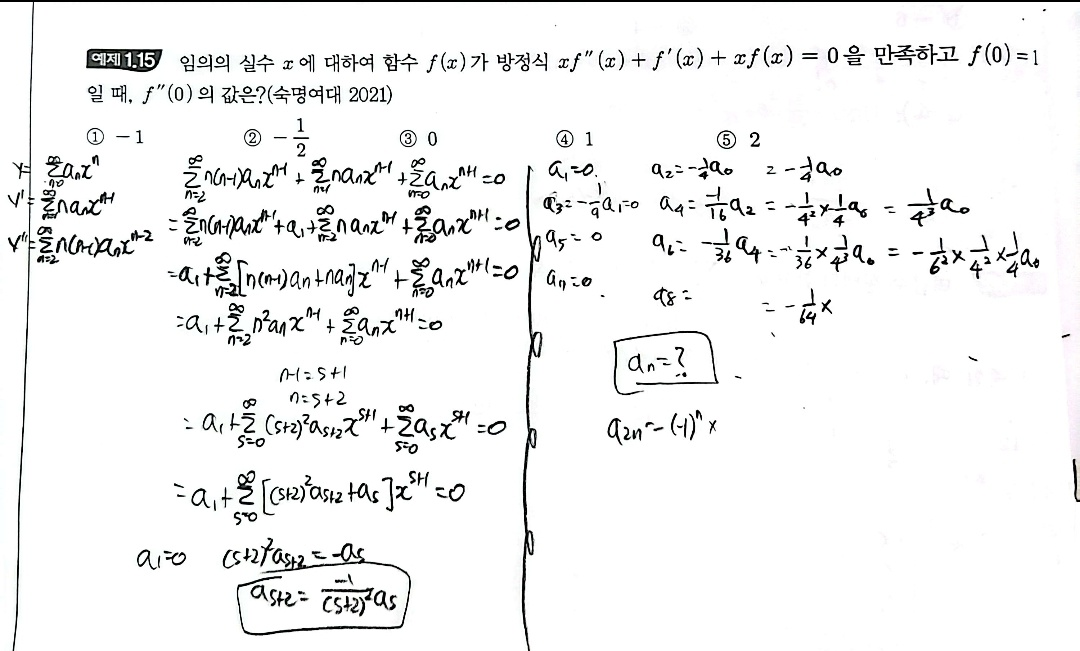 예제 1.15 임의의 실수 x에 대하여 함수 f(x)가 방정식 xf''(x)+f'(x)+xf(x)=0을 만족하고 f(0)=1
일 때, f''(0)의 값은?(숙명여대 2021)
① -1 ② -1/2 ③ 0 ④ 1 ⑤ 2
y= ∑_{n=0}^{∞} a_n x^n
y'= ∑_{n=1}^{∞} n a_n x^{n-1}
y''= ∑_{n=2}^{∞} n(n-1)a_n x^{n-2}
∑_{n=2}^{∞} n(n-1)a_n x^{n-1} + ∑_{n=1}^{∞} n a_n x^{n-1} + ∑_{n=0}^{∞} a_n x^{n+1} =0
= ∑_{n=2}^{∞} n(n-1)a_n x^{n-1} + a_1 + ∑_{n=2}^{∞} n a_n x^{n-1} + ∑_{n=0}^{∞} a_n x^{n+1} =0
= a_1 + ∑_{n=2}^{∞} [n(n-1)a_n + n a_n] x^{n-1} + ∑_{n=0}^{∞} a_n x^{n+1} =0
= a_1 + ∑_{n=2}^{∞} n^2 a_n x^{n-1} + ∑_{n=0}^{∞} a_n x^{n+1} =0
n-1=s+1
n=s+2
= a_1 + ∑_{s=0}^{∞} (s+2)^2 a_{s+2} x^{s+1} + ∑_{s=0}^{∞} a_s x^{s+1} =0
= a_1 + ∑_{s=0}^{∞} [(s+2)^2 a_{s+2} + a_s] x^{s+1} =0
a_1=0 (s+2)^2 a_{s+2} = -a_s
a_{s+2} = -1/(s+2)^2 a_s
a_1=0. a_2=-1/4 a_0 = -1/4 a_0
a_3=-1/9 a_1=0 a_4=-1/16 a_2 = -1/4^2 × -1/4 a_0 = 1/4^3 a_0
a_5=0 a_6= -1/36 a_4 = -1/36 × 1/4^3 a_0 = -1/6^2 × 1/4^2 × 1/4 a_0
a_n=0 a_8= = -1/64 ×
a_n=?
a_{2n}= (-1)^n ×